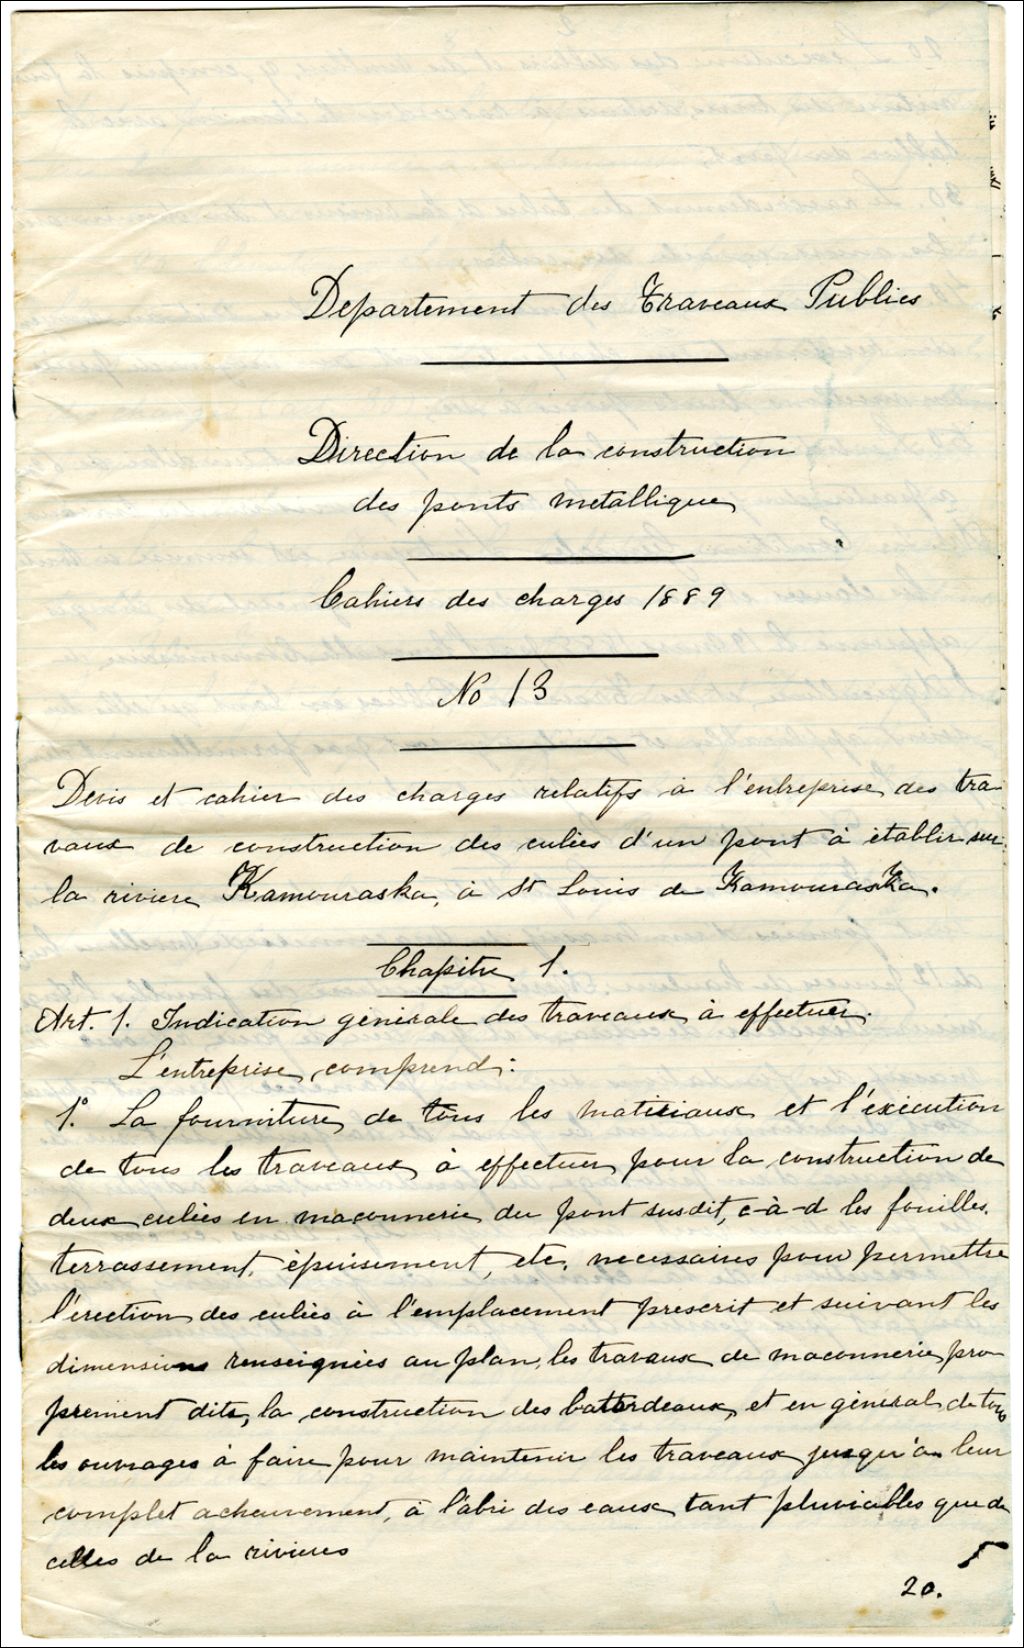 Departement des Traveaux Publics
Direction de la construction
des ponts metalliques
Cahiers des charges 1889
No 13
Devis et cahier des charges relatifs à l'entreprise des tra
vaux de construction des culées d'un pont à établir sur
la riviere Kamouraska, à St Louis de Kamouraska.
Chapitre 1.
Art. 1. Indication générale des traveaux à effectuer.
L'entreprise comprend:
1º La fourniture de tous les matériaux et l'exécution
de tous les traveaux à effectuer pour la construction de
deux culées en maconnerie du pont susdit, c-à-d les fouilles,
terrassement, épuisement, etc, necessaires pour permettre
l'erection des culées à l'emplacement prescrit et suivant les
dimensions renseignées au plan, les travaux de maconnerie pro
prement dits, la construction des batterdeaux, et en général de tous
les ouvrages à faire pour maintenir les traveaux jusqu'à leur
complet acheuvement, à l'abri des eaux tant pluviables que de
celles de la rivieres
20.